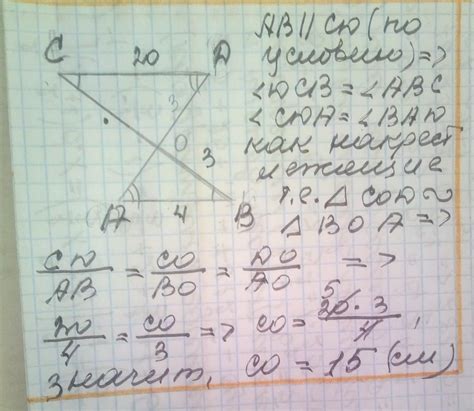 AB || CD (по
условию) =>
∠DCB = ∠ABC
∠CDA = ∠BAD
как накрест
лежащие
т.е. △ COD ~
△ BOA =>
C 20 D
3
O
3
A 4 B
CD/AB = CO/BO = DO/AO =>
20/4 = CO/3 => CO = 5 20·3/4,
значит, CO = 15 (см)